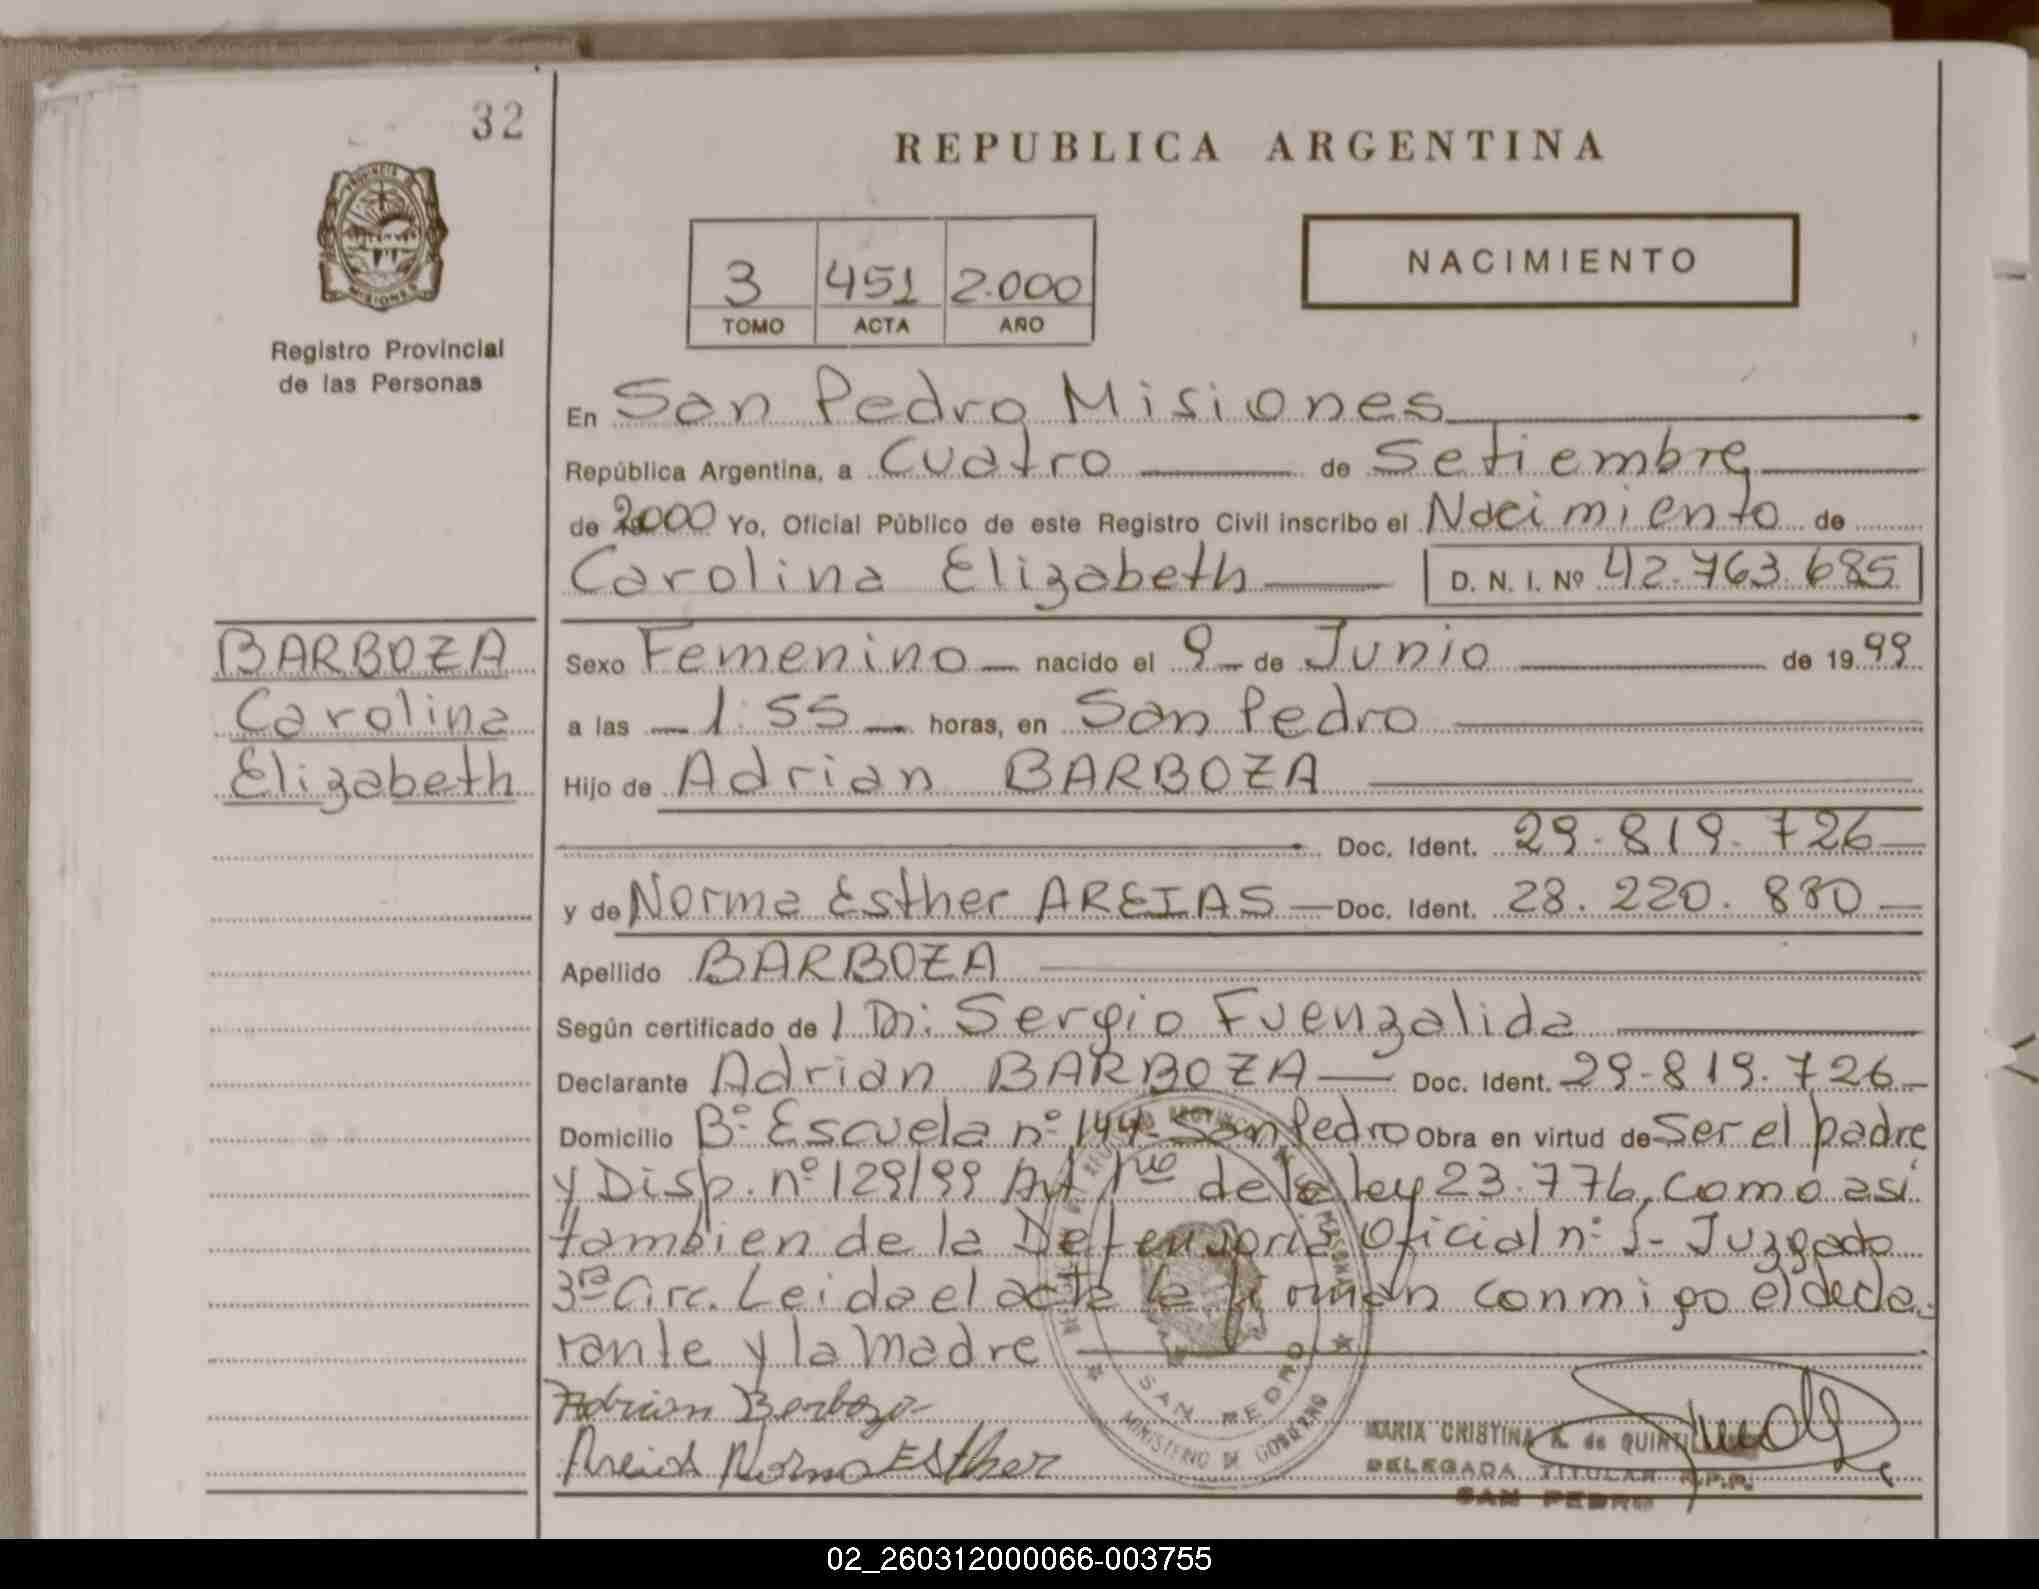 32
REPUBLICA ARGENTINA
PROVINCIA DE
MISIONES
Registro Provincial
de las Personas
3 451 2.000
TOMO ACTA AÑO
NACIMIENTO
En San Pedro Misiones
República Argentina, a Cuatro de Setiembre
de 2000 Yo, Oficial Público de este Registro Civil inscribo el Nacimiento de
Carolina Elizabeth D. N. I. Nº 42.763.685
BARBOZA
Carolina
Elizabeth
Sexo Femenino nacido el 9 de Junio de 1999
a las 1:55 horas, en San Pedro
Hijo de Adrian BARBOZA
Doc. Ident. 29.819.726
y de Norma Esther AREIAS Doc. Ident. 28.220.880
Apellido BARBOZA
Según certificado de Dr: Sergio Fuenzalida
Declarante Adrian BARBOZA Doc. Ident. 29.819.726
Domicilio Bº Escuela nº 144 San Pedro Obra en virtud de Ser el padre
y Disp. nº 129/99 Art 1ro de la ley 23.776, como asi
tambien de la Defensoria Oficial nº 1- Juzgado
3ra Circ. Leida el acta la firman conmigo el decla-
rante y la madre
Adrian Barboza
Areias Norma Esther
SAN PEDRO
MINISTERIO DE GOBIERNO
MARIA CRISTINA R. de
DELEGADA TITULAR R.P.P.
SAN PEDRO
02_260312000066-003755